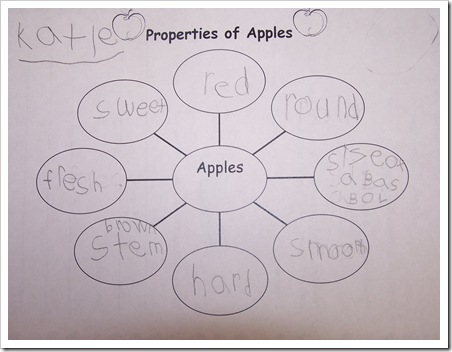 Katie
Properties of Apples
red
sweet
round
Apples
fresh
siseof
a Bas
a BOL
brown
stem
smooth
hard